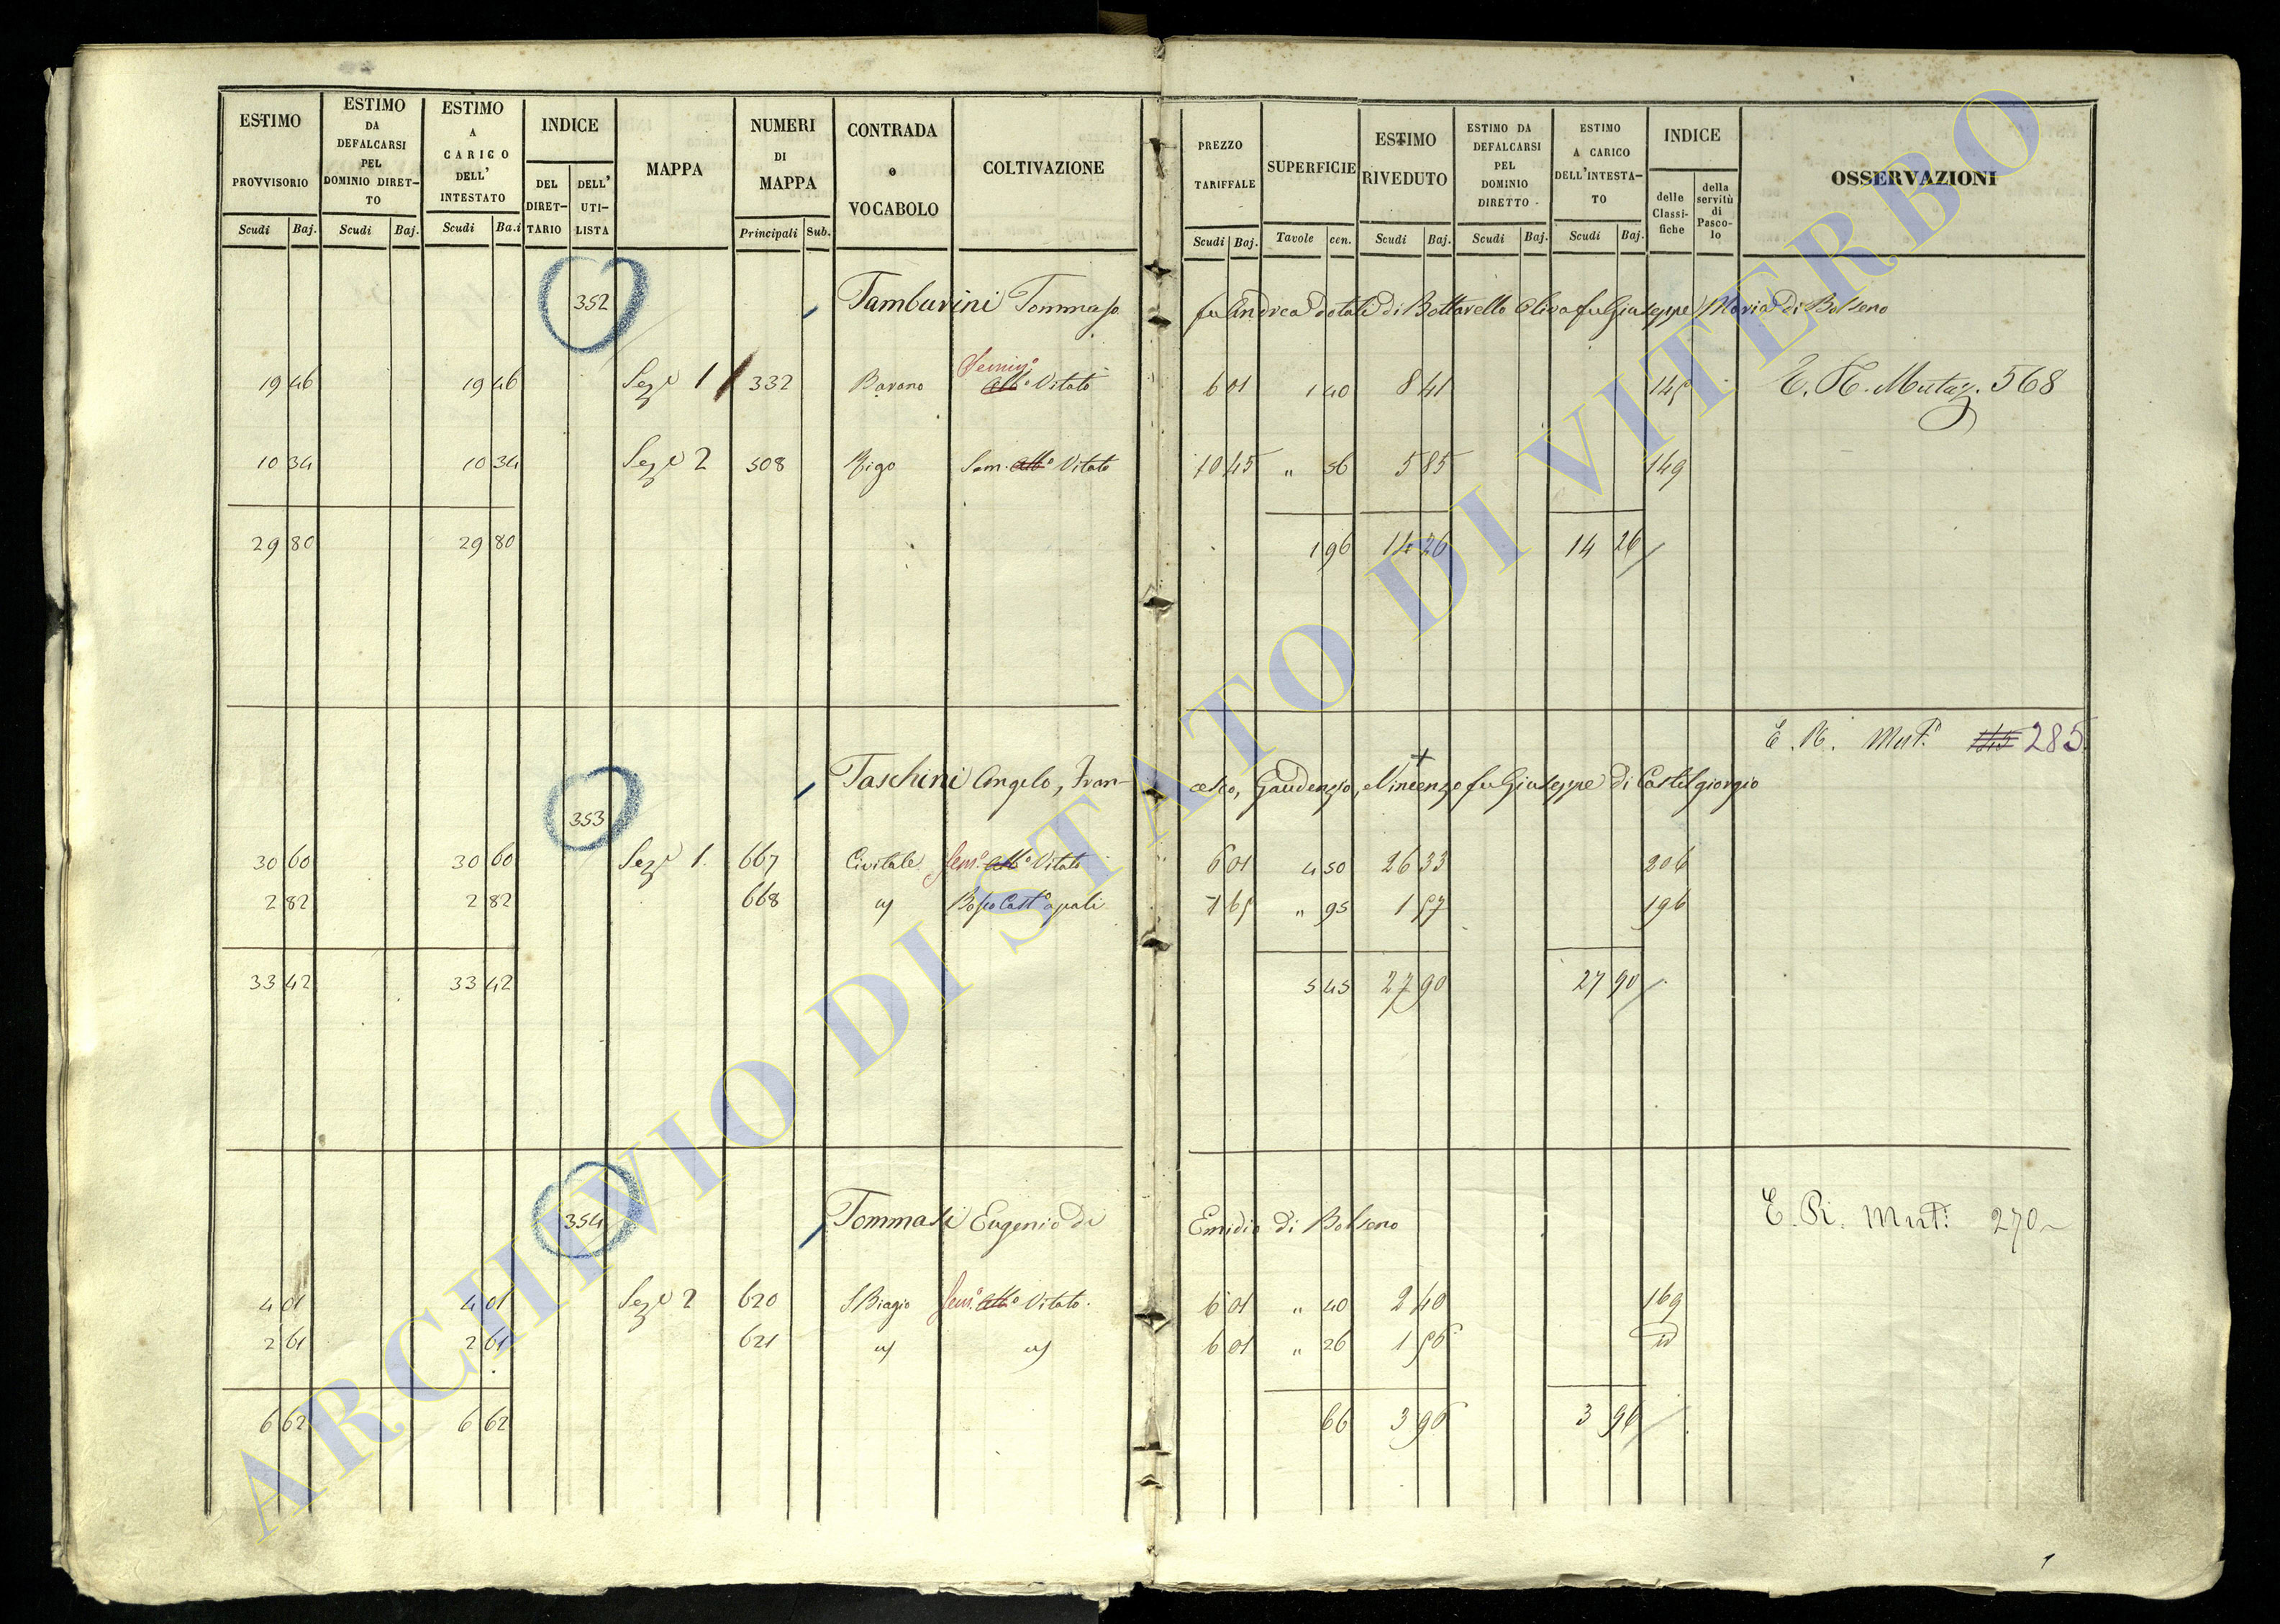 ESTIMO PROVVISORIO Scudi Baj.
ESTIMO DA DEFALCARSI PEL DOMINIO DIRET-TO Scudi Baj.
ESTIMO A CARICO DELL' INTESTATO Scudi Ba.i
INDICE DEL DIRET-TARIO DELL' UTI-LISTA
MAPPA
NUMERI DI MAPPA Principali Sub.
CONTRADA o VOCABOLO
COLTIVAZIONE
PREZZO TARIFFALE Scudi Baj.
SUPERFICIE Tavole cen.
ESTIMO RIVEDUTO Scudi Baj.
ESTIMO DA DEFALCARSI PEL DOMINIO DIRETTO Scudi Baj.
ESTIMO A CARICO DELL'INTESTA-TO Scudi Baj.
INDICE delle Classi-fiche della servitù di Pasco-lo
OSSERVAZIONI
352 Tamburini Tommaso fu Andrea dotali di Bottarello Oliva fu Giuseppe Maria di Bolseno
19 46 19 46 Sez.e 1 332 Barano Semin.o Alb.o Vitato 6 01 1 40 8 41 145 E. R. Mutaz. 568
10 34 10 34 Sez.e 2 508 Rigo Sem. Alb.o Vitato 10 45 " 56 5 85 149
29 80 29 80 1 96 14 26 14 26
E. R. Mut. 285
353 Taschini Angelo, Francesco, Gaudenzio, e Vincenzo fu Giuseppe di Castelgiorgio
30 60 30 60 Sez.e 1. 667 Civitale Sem.o Alb.o Vitato 6 01 4 50 26 33 206
2 82 2 82 668 id Bosco Cast.o a pali 1 65 " 95 1 57 196
33 42 33 42 5 45 27 90 27 90
354 Tommasi Eugenio di Emidio di Bolseno E. R. Mut: 270
4 01 4 01 Sez.e 2 620 S Biagio Sem.o Alb.o Vitato. 6 01 " 40 2 40 169
2 61 2 61 621 id id 6 01 " 26 1 56 id
6 62 6 62 66 3 96 3 96
ARCHIVIO DI STATO DI VITERBO